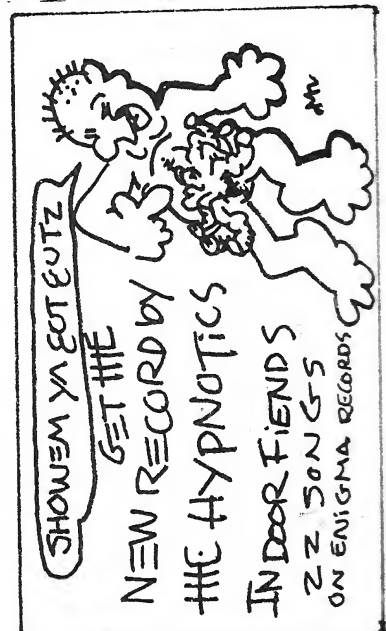 SHOWEM YA GOT GUTZ
GET THE
NEW RECORD by
THE HYPNOTICS
INDOOR FIENDS
22 SONGS
ON ENIGMA RECORDS